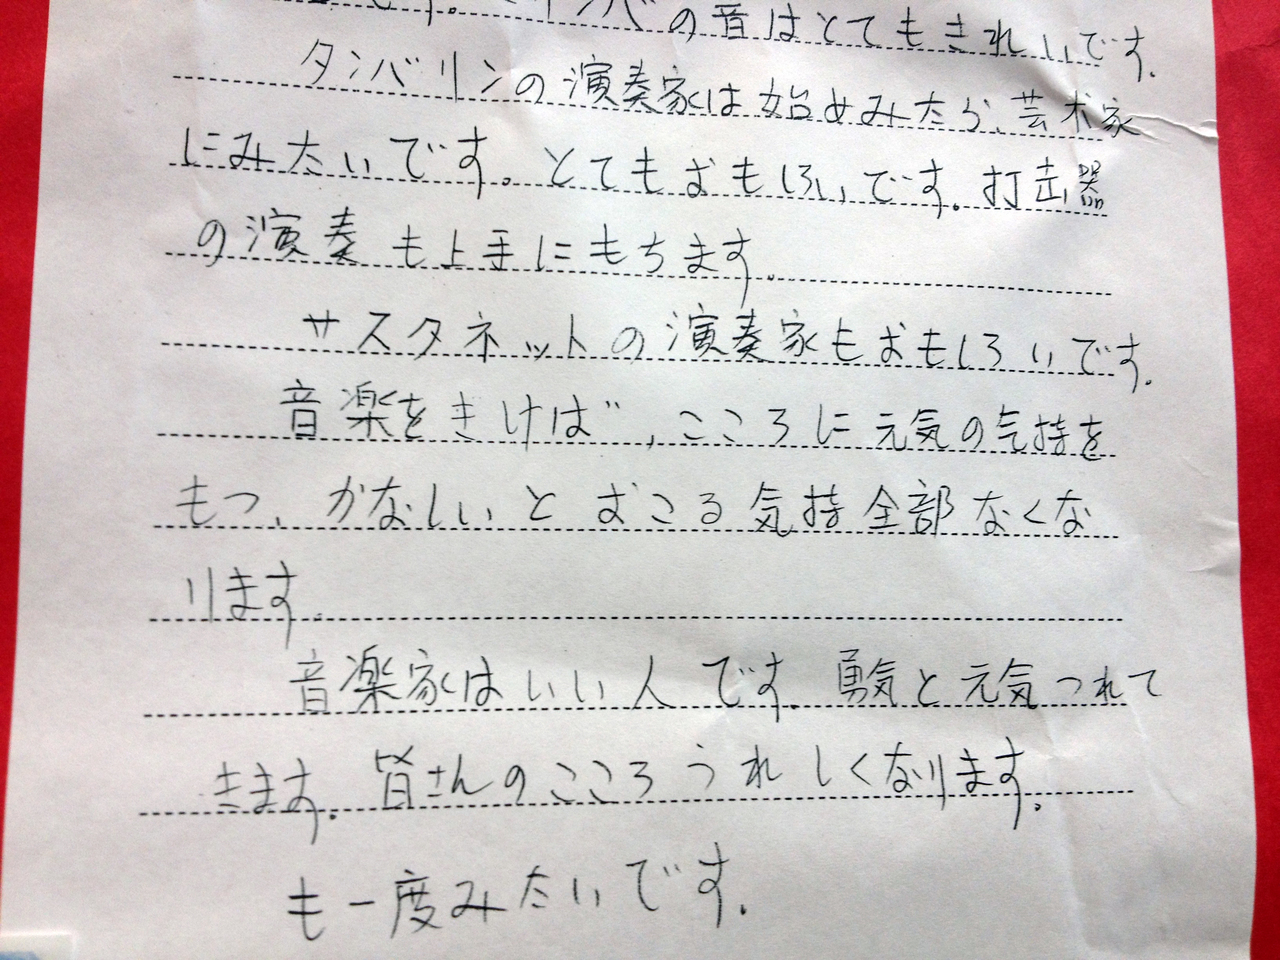 の音はとてもきれいです。
タンバリンの演奏家は始めみたら、芸术家
にみたいです。とてもおもしろいです。打击器
の演奏も上手にもちます。
サスタネットの演奏家もおもしろいです。
音楽をきけば、こころに元気の気持を
もつ、かなしいとおこる気持全部なくな
ります。
音楽家はいい人です。勇気と元気つれて
きます。皆さんのこころうれしくなります。
も一度みたいです。